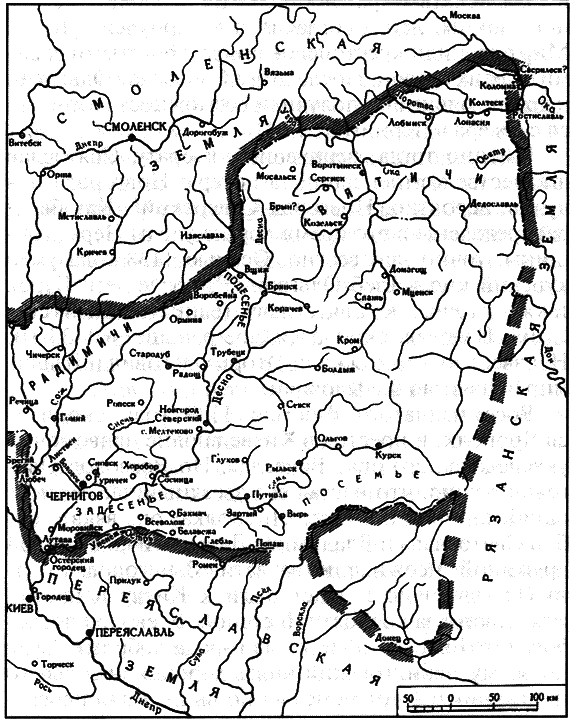 Москва
СМОЛЕНСКАЯ
Вязьма
Свирилеск?
Коломна
Колтеск
Ока
Ростиславль
Поротва
Лобинск
Лопасня
СМОЛЕНСК
Дорогобуж
Угра
Витебск
Днепр
ЗЕМЛЯ
Орша
Воротынеск
Ока
Осетр
Мосальск
Серенск
ВЯТИЧИ
Мстиславль
Брын?
Дедославль
Козельск
Изяславль
Десна
Кричев
Вщиж
ПОДЕСЕНЬЕ
Домагощ
Брянск
Воробейна
Мценск
Ормина
Карачев
Спашь
Дон
РАДИМИЧИ
Чичерск
Кром
Стародуб
Трубецк
Болдыж
Радощ
Сож
Десна
Речица
Ропеск
Севск
Гомий
Снепь
Новгород
Северский
с. Мелтеково
Ольгов
Курск
Листвен
Брягин
Сновск
Хоробор
Глухов
Рыльск
Любеч
Гуричев
Сосница
ЧЕРНИГОВ
ПОСЕМЬЕ
Путивль
ЗАДЕСЕНЬЕ
Бахмач
Зартый
Вырь
Моровийск
Всеволож
Белавежа
Лутава
Глебль
Попаш
Остерский
городец
Ромен
РЯЗАНСКАЯ ЗЕМЛЯ
Прилук
Городец
КИЕВ
Псёл
Ворскла
Донец
ПЕРЕЯСЛАВСКАЯ
ПЕРЕЯСЛАВЛЬ
Сула
Торческ
ЗЕМЛЯ
Рось
Днепр
50 0 50 100 км